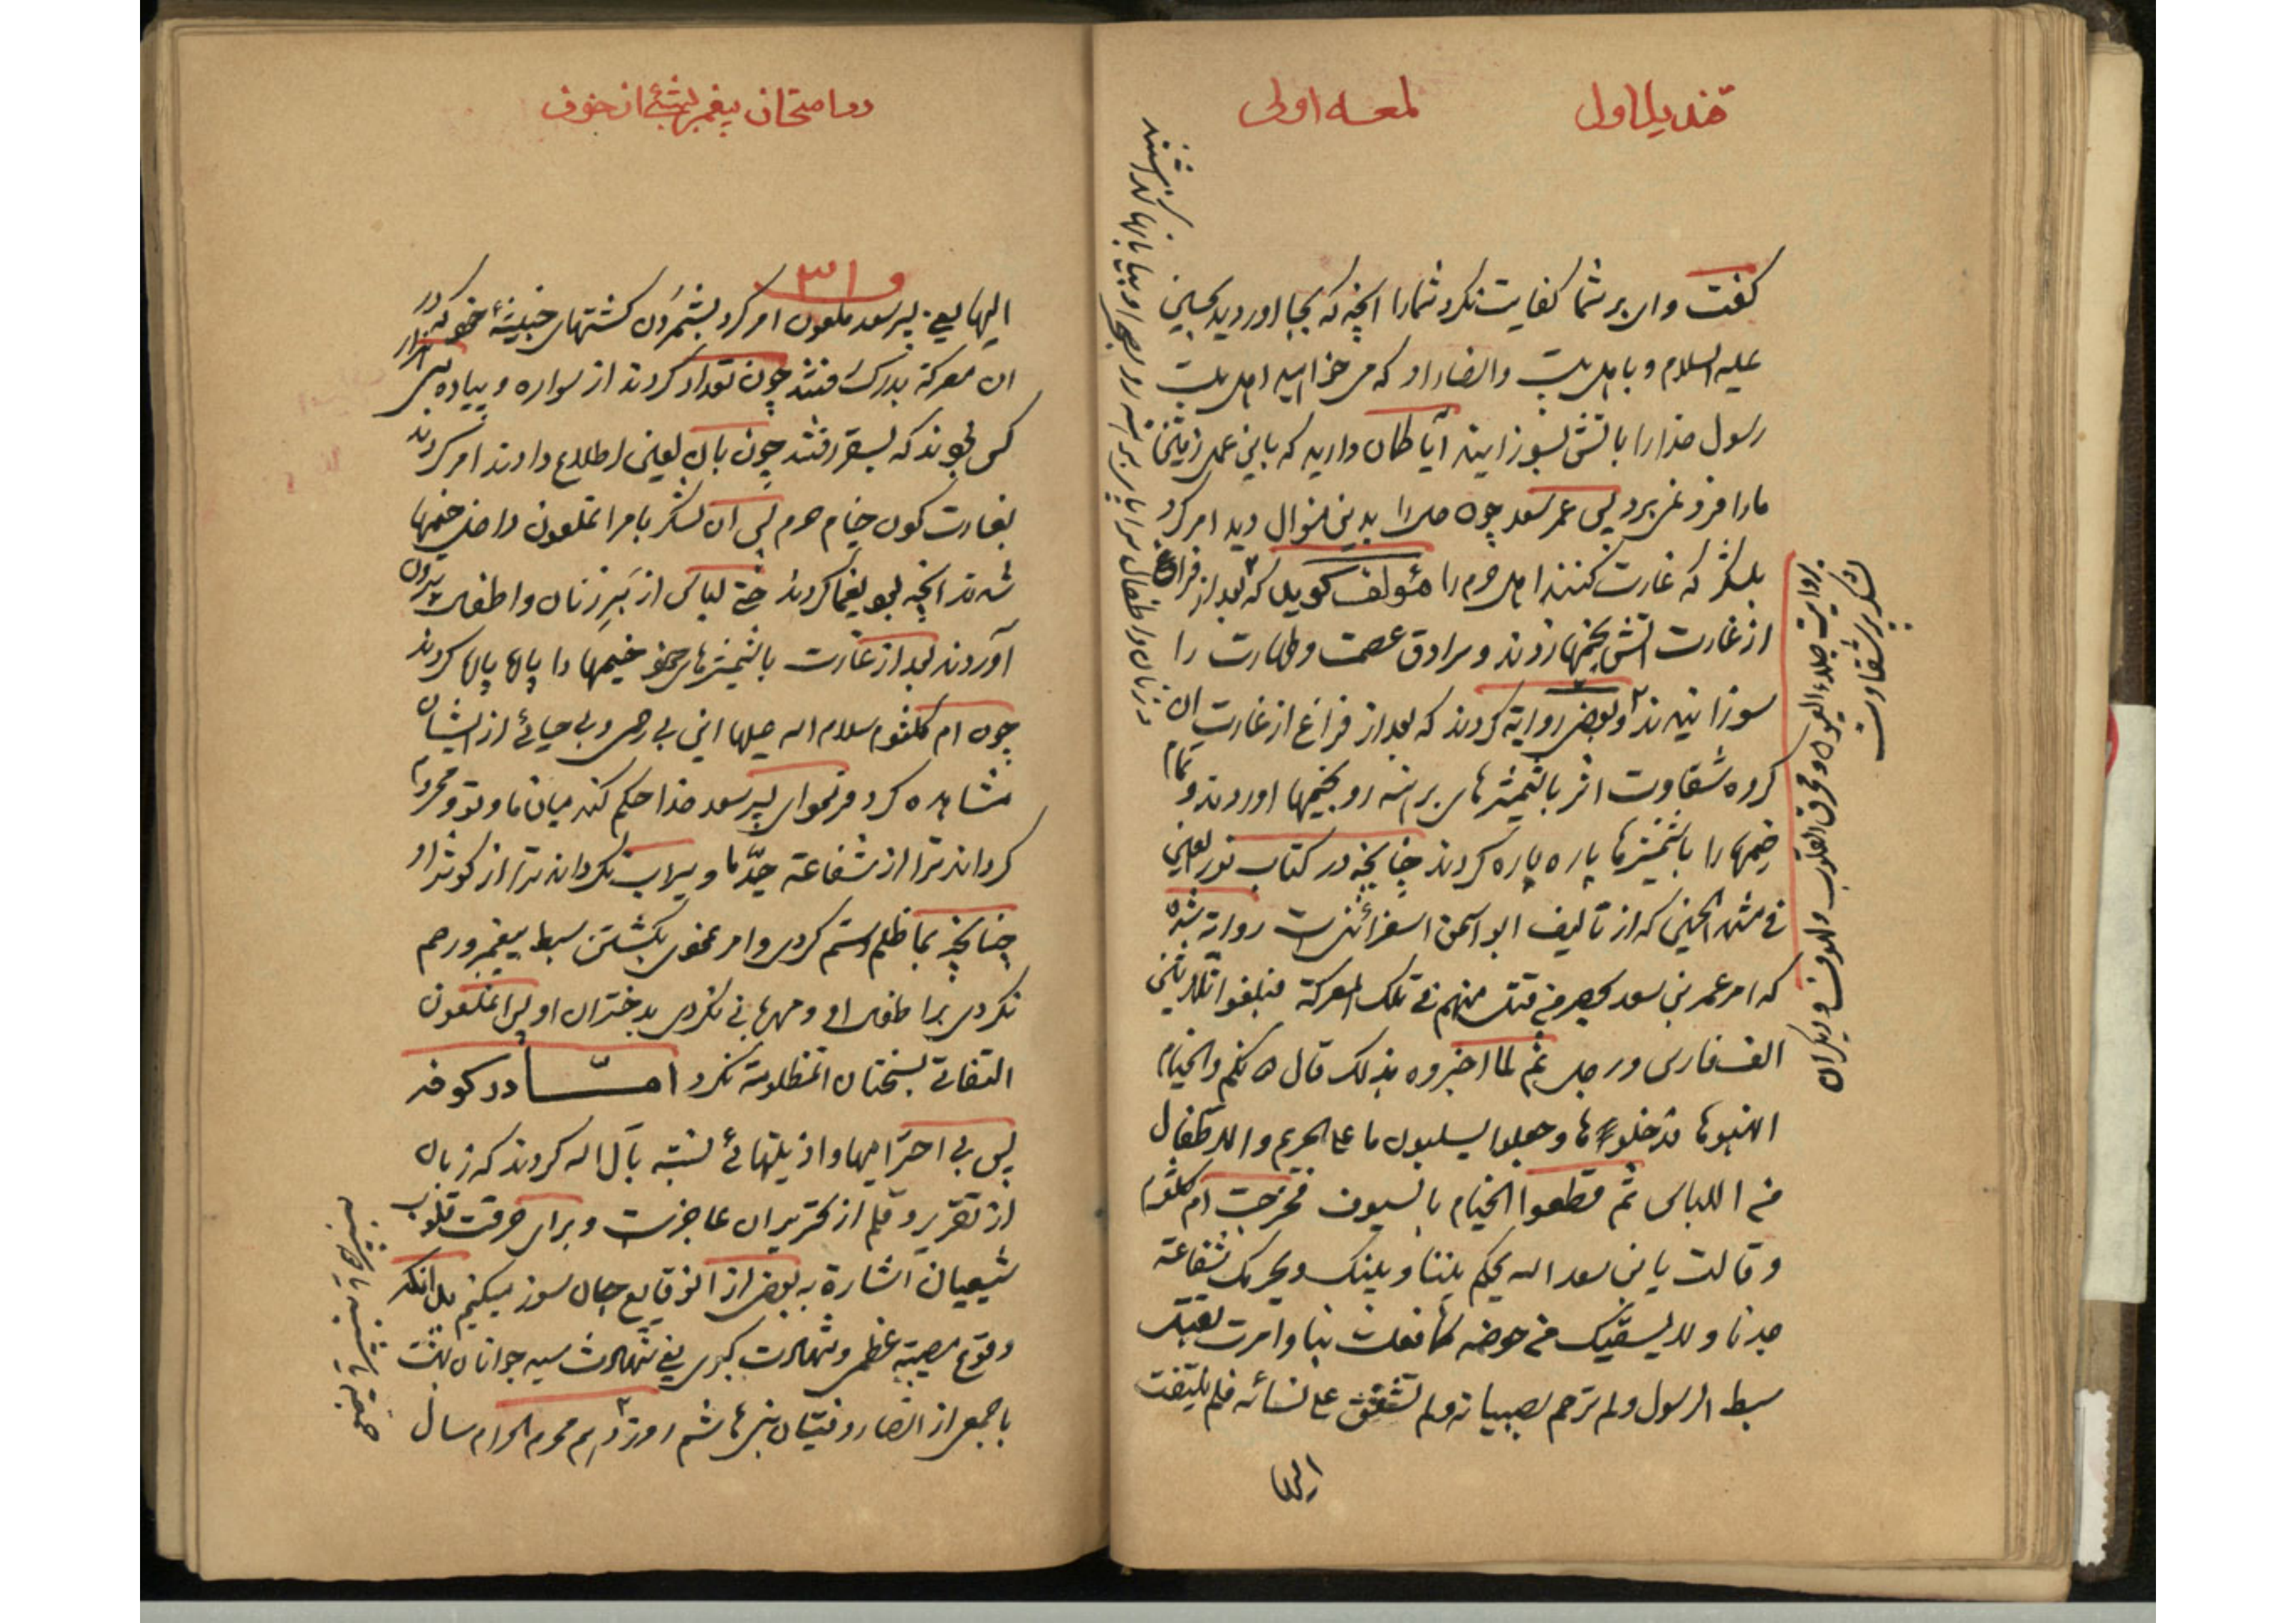 قندیل اول
لمعه اولی
گفت وای بر شما کفایت نکرد شمارا انچه که بجا اوردید بحسین
علیه السلام و باهل بیت وانصار او که می خواهید اهل بیت
رسول خدارا باتش بسوزانید آیا کمان دارید که باین عمل زمین
مارا فرو نمی برد پس عمر سعد چون را بدین منوال دید امر کرد
بلشکر که غارت کنند اهل حرم را مؤلف گوید که بعد از فراغ
از غارت اتش بخیمها زدند و سرادق عصمت و طهارت را
سوزانیدند و بعضی روایة کردند که بعد از فراغ از غارت ان
گروه شقاوت اثر با شمشیرهای برهنه رو بخیمها اوردند و تمام
خیمها را با شمشیرها پاره پاره کردند چنانچه در کتاب نور العین
فی مشهد الحسین که از تالیف ابو اسحق اسفرائنی است روایة شده
که امر عمر بن سعد بحصر من قتل منهم فی تلک المعرکة فبلغوا ثلاثین
الف فارس و رجل ثم لما اخبروه بذلک قال لهم دونکم والخیام
انهبوها فدخلوها و جعلوا یسلبون ما علی الحریم والاطفال
من اللباس ثم قطعوا الخیام بالسیوف فخرجت ام کلثوم
و قالت یا بن سعد الله یحکم بیننا و بینک و یحرمک شفاعة
جدنا و لا یسقیک من حوضه کما فعلت بنا وامرت بقتل
سبط الرسول ولم ترحم صبیانه ولم تشفق علی نسائه فلم یلتفت
الیها
بروایت جلاء العیون و محرق القلوب و لهوف و دیگران
لشکر شقاوت
برهنه رو بصحرا و بیابانها گذاشتند
در امتحان پیغمبر از خوف
۳۱
الیها یعنی پسر سعد ملعون امر کرد بشمردن کشتهای خبیثهٔ خود که در
ان معرکة بدرک رفتند چون تعداد کردند از سواره و پیاده سی هزار
کس بودند که بسقر رفتند چون بان لعین اطلاع دادند امر کردند
بغارت کردن خیام حرم پس ان لشکر بامر انملعون داخل خیمها
شدند انچه بود یغما کردند حتی لباس از بر زنان و اطفال بیرون
آوردند بعد از غارت باشمشیرهای خود خیمها را پاره پاره کردند
چون ام کلثوم سلام الله علیها این بی رحمی و بی حیائی از ایشان
مشاهده کرد فرمود ای پسر سعد خدا حکم کند میان ما و تو و محروم
کرداند ترا از شفاعة جدّ ما و سیراب نکرداند ترا از کوثر او
چنانچه بما ظلم و ستم کردی و امر نمودی بکشتن سبط پیغمبر و رحم
نکردی بر اطفال او و مهربانی نکردی بدختران او پس انملعون
التفاتی بسخنان انمظلومة نکرد امّا در کوفه
پس بی احترامیها و اذیتهائی نسبة بآل الله کردند که زبان
از تقریر و قلم از تحریر ان عاجز است و برای حرقت قلوب
شیعیان اشارة به بعضی از انوقایع جان سوز میکنیم بدانکه
وقوع مصیبة عظمی و شهادت کبری یعنی شهادت سید جوانان بهشت
با جمعی از انصار و فتیان بنی هاشم روز دهم محرم الحرام سال